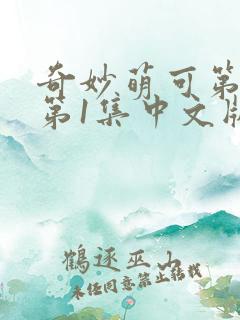 奇妙萌可第
第1集中文版
鶴逐巫山
未经同意禁止转载